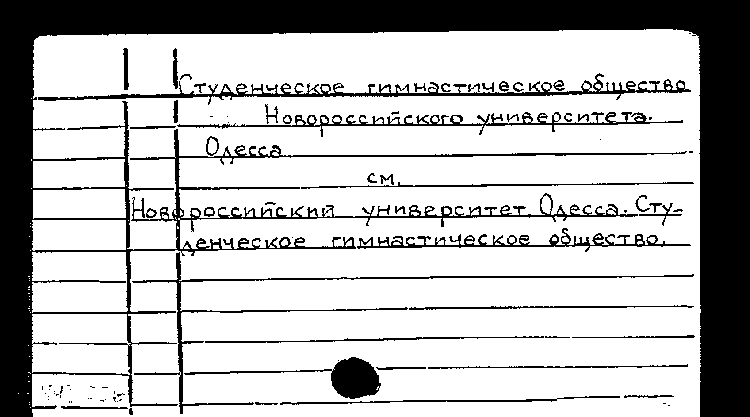 Студенческое гимнастическое общество
Новороссийского университета.
Одесса
см.
Новороссийский университет. Одесса. Сту-
денческое гимнастическое общество.